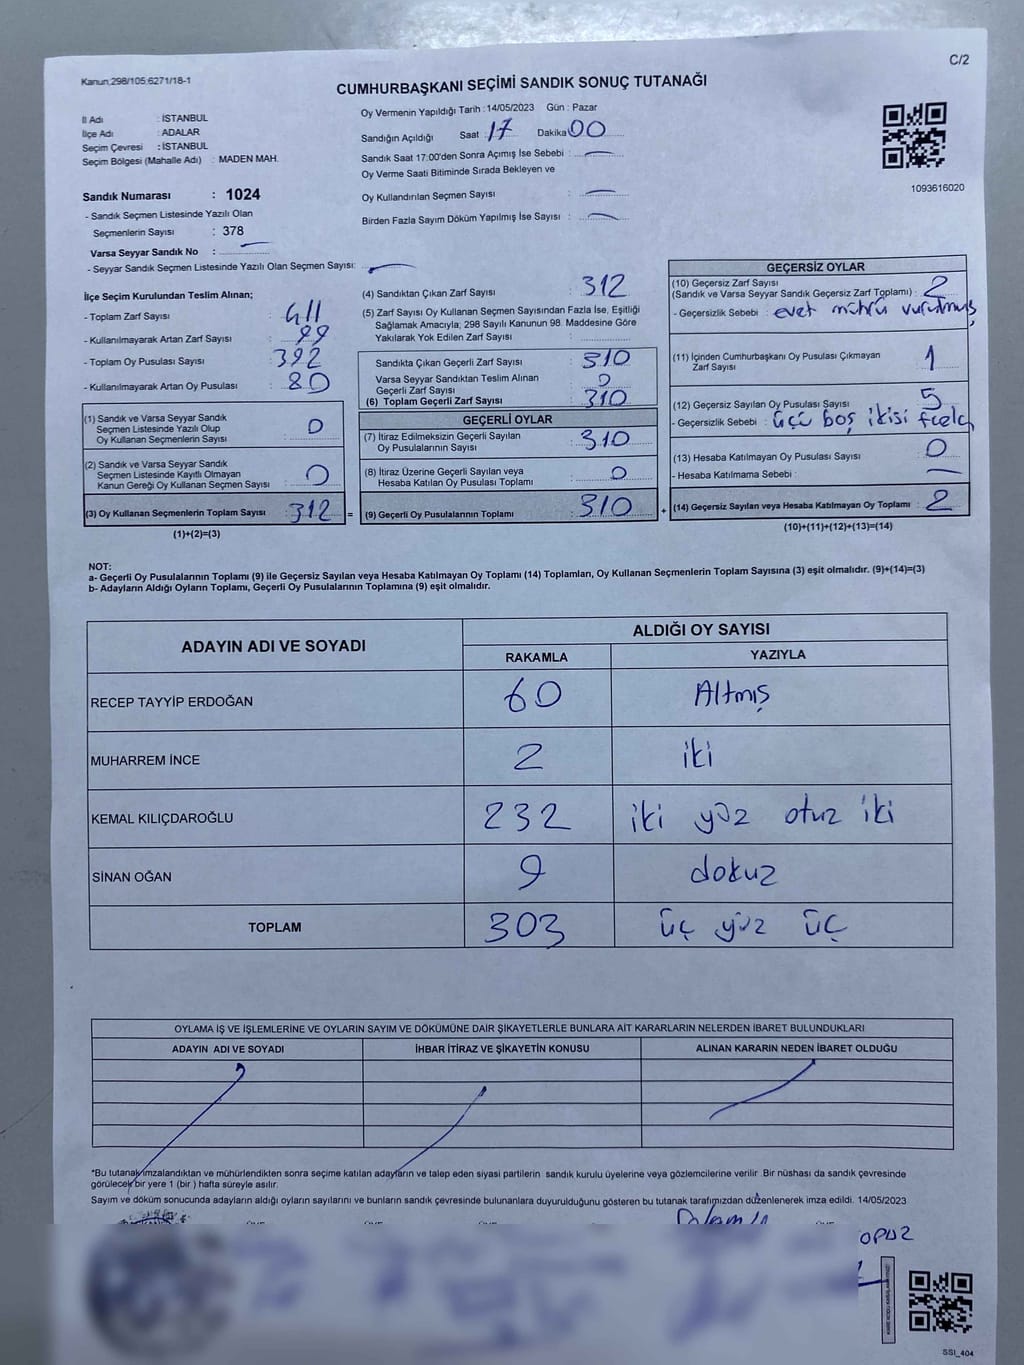 Kanun:298/105:6271/18-1
C/2
CUMHURBAŞKANI SEÇİMİ SANDIK SONUÇ TUTANAĞI
İl Adı : İSTANBUL
İlçe Adı : ADALAR
Seçim Çevresi : İSTANBUL
Seçim Bölgesi (Mahalle Adı) : MADEN MAH.
Sandık Numarası : 1024
- Sandık Seçmen Listesinde Yazılı Olan
Seçmenlerin Sayısı : 378
Varsa Seyyar Sandık No :
- Seyyar Sandık Seçmen Listesinde Yazılı Olan Seçmen Sayısı:
Oy Vermenin Yapıldığı Tarih :14/05/2023 Gün : Pazar
Sandığın Açıldığı Saat : 17 Dakika 00
Sandık Saat 17:00'den Sonra Açımış İse Sebebi : —
Oy Verme Saati Bitiminde Sırada Bekleyen ve
Oy Kullandırılan Seçmen Sayısı : —
Birden Fazla Sayım Döküm Yapılmış İse Sayısı : —
1093616020
İlçe Seçim Kurulundan Teslim Alınan;
- Toplam Zarf Sayısı : 411
- Kullanılmayarak Artan Zarf Sayısı : 99
- Toplam Oy Pusulası Sayısı : 392
- Kullanılmayarak Artan Oy Pusulası : 80
(1) Sandık ve Varsa Seyyar Sandık
Seçmen Listesinde Yazılı Olup
Oy Kullanan Seçmenlerin Sayısı : 0
(2) Sandık ve Varsa Seyyar Sandık
Seçmen Listesinde Kayıtlı Olmayan
Kanun Gereği Oy Kullanan Seçmen Sayısı : 0
(3) Oy Kullanan Seçmenlerin Toplam Sayısı : 312 =
(1)+(2)=(3)
(4) Sandıktan Çıkan Zarf Sayısı : 312
(5) Zarf Sayısı Oy Kullanan Seçmen Sayısından Fazla İse, Eşitliği
Sağlamak Amacıyla; 298 Sayılı Kanunun 98. Maddesine Göre
Yakılarak Yok Edilen Zarf Sayısı :
Sandıkta Çıkan Geçerli Zarf Sayısı : 310
Varsa Seyyar Sandıktan Teslim Alınan
Geçerli Zarf Sayısı : 0
(6) Toplam Geçerli Zarf Sayısı : 310
GEÇERLİ OYLAR
(7) İtiraz Edilmeksizin Geçerli Sayılan
Oy Pusulasının Sayısı : 310
(8) İtiraz Üzerine Geçerli Sayılan veya
Hesaba Katılan Oy Pusulası Toplamı : 0
(9) Geçerli Oy Pusulalarının Toplamı : 310 +
GEÇERSİZ OYLAR
(10) Geçersiz Zarf Sayısı
(Sandık ve Varsa Seyyar Sandık Geçersiz Zarf Toplamı) : 2
- Geçersizlik Sebebi : evet mührü vurulmuş
(11) İçinden Cumhurbaşkanı Oy Pusulası Çıkmayan
Zarf Sayısı : 1
(12) Geçersiz Sayılan Oy Pusulası Sayısı : 5
- Geçersizlik Sebebi : üçü boş ikisi fazla
(13) Hesaba Katılmayan Oy Pusulası Sayısı : 0
- Hesaba Katılmama Sebebi : —
(14) Geçersiz Sayılan veya Hesaba Katılmayan Oy Toplamı : 2
(10)+(11)+(12)+(13)=(14)
NOT:
a- Geçerli Oy Pusulalarının Toplamı (9) ile Geçersiz Sayılan veya Hesaba Katılmayan Oy Toplamı (14) Toplamları, Oy Kullanan Seçmenlerin Toplam Sayısına (3) eşit olmalıdır. (9)+(14)=(3)
b- Adayların Aldığı Oyların Toplamı, Geçerli Oy Pusulalarının Toplamına (9) eşit olmalıdır.
ADAYIN ADI VE SOYADI
ALDIĞI OY SAYISI
RAKAMLA YAZIYLA
RECEP TAYYİP ERDOĞAN 60 Altmış
MUHARREM İNCE 2 iki
KEMAL KILIÇDAROĞLU 232 iki yüz otuz iki
SİNAN OĞAN 9 dokuz
TOPLAM 303 üç yüz üç
OYLAMA İŞ VE İŞLEMLERİNE VE OYLARIN SAYIM VE DÖKÜMÜNE DAİR ŞİKAYETLERLE BUNLARA AİT KARARLARIN NELERDEN İBARET BULUNDUKLARI
ADAYIN ADI VE SOYADI İHBAR İTİRAZ VE ŞİKAYETİN KONUSU ALINAN KARARIN NEDEN İBARET OLDUĞU
*Bu tutanak imzalandıktan ve mühürlendikten sonra seçime katılan adayların ve talep eden siyasi partilerin sandık kurulu üyelerine veya gözlemcilerine verilir. Bir nüshası da sandık çevresinde
görülecek bir yere 1 (bir) hafta süreyle asılır.
Sayım ve döküm sonucunda adayların aldığı oyların sayılarını ve bunların sandık çevresinde bulunanlara duyurulduğunu gösteren bu tutanak tarafımızdan düzenlenerek imza edildi. 14/05/2023
SSI_404